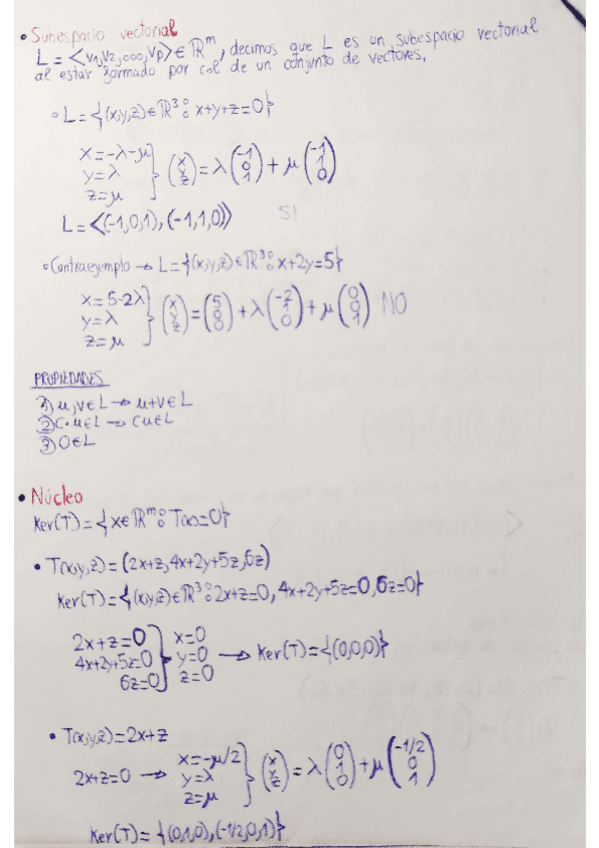 • Subespacio vectorial
L = <v1,v2,ooo,vp> ∈ ℝ^m, decimos que L es un subespacio vectorial
al estar formado por col de un conjunto de vectores.
◦ L = {(x,y,z) ∈ ℝ³ : x+y+z=0}
x = -λ-μ
y = λ
z = μ
} (x y z) = λ (-1 1 0) + μ (-1 0 1)
L = <(-1,0,1), (-1,1,0)> SI
◦ Contraejemplo → L = {(x,y,z) ∈ ℝ³ : x+2y=5}
x = 5-2λ
y = λ
z = μ
} (x y z) = (5 0 0) + λ (-2 1 0) + μ (0 0 1) NO
PROPIEDADES
1) μ,v∈L → μ+v∈L
2) C·u∈L → Cu∈L
3) 0∈L
• Núcleo
Ker(T) = {x∈ℝ^m : T(x)=0}
• T(x,y,z) = (2x+z, 4x+2y+5z, 6z)
Ker(T) = {(x,y,z) ∈ ℝ³ : 2x+z=0, 4x+2y+5z=0, 6z=0}
2x+z=0
4x+2y+5z=0
6z=0
} x=0
y=0
z=0
→ Ker(T) = {(0,0,0)}
• T(x,y,z) = 2x+z
2x+z=0 → x = -μ/2
y = λ
z = μ
} (x y z) = λ (0 1 0) + μ (-1/2 0 1)
Ker(T) = {(0,1,0), (-1/2,0,1)}